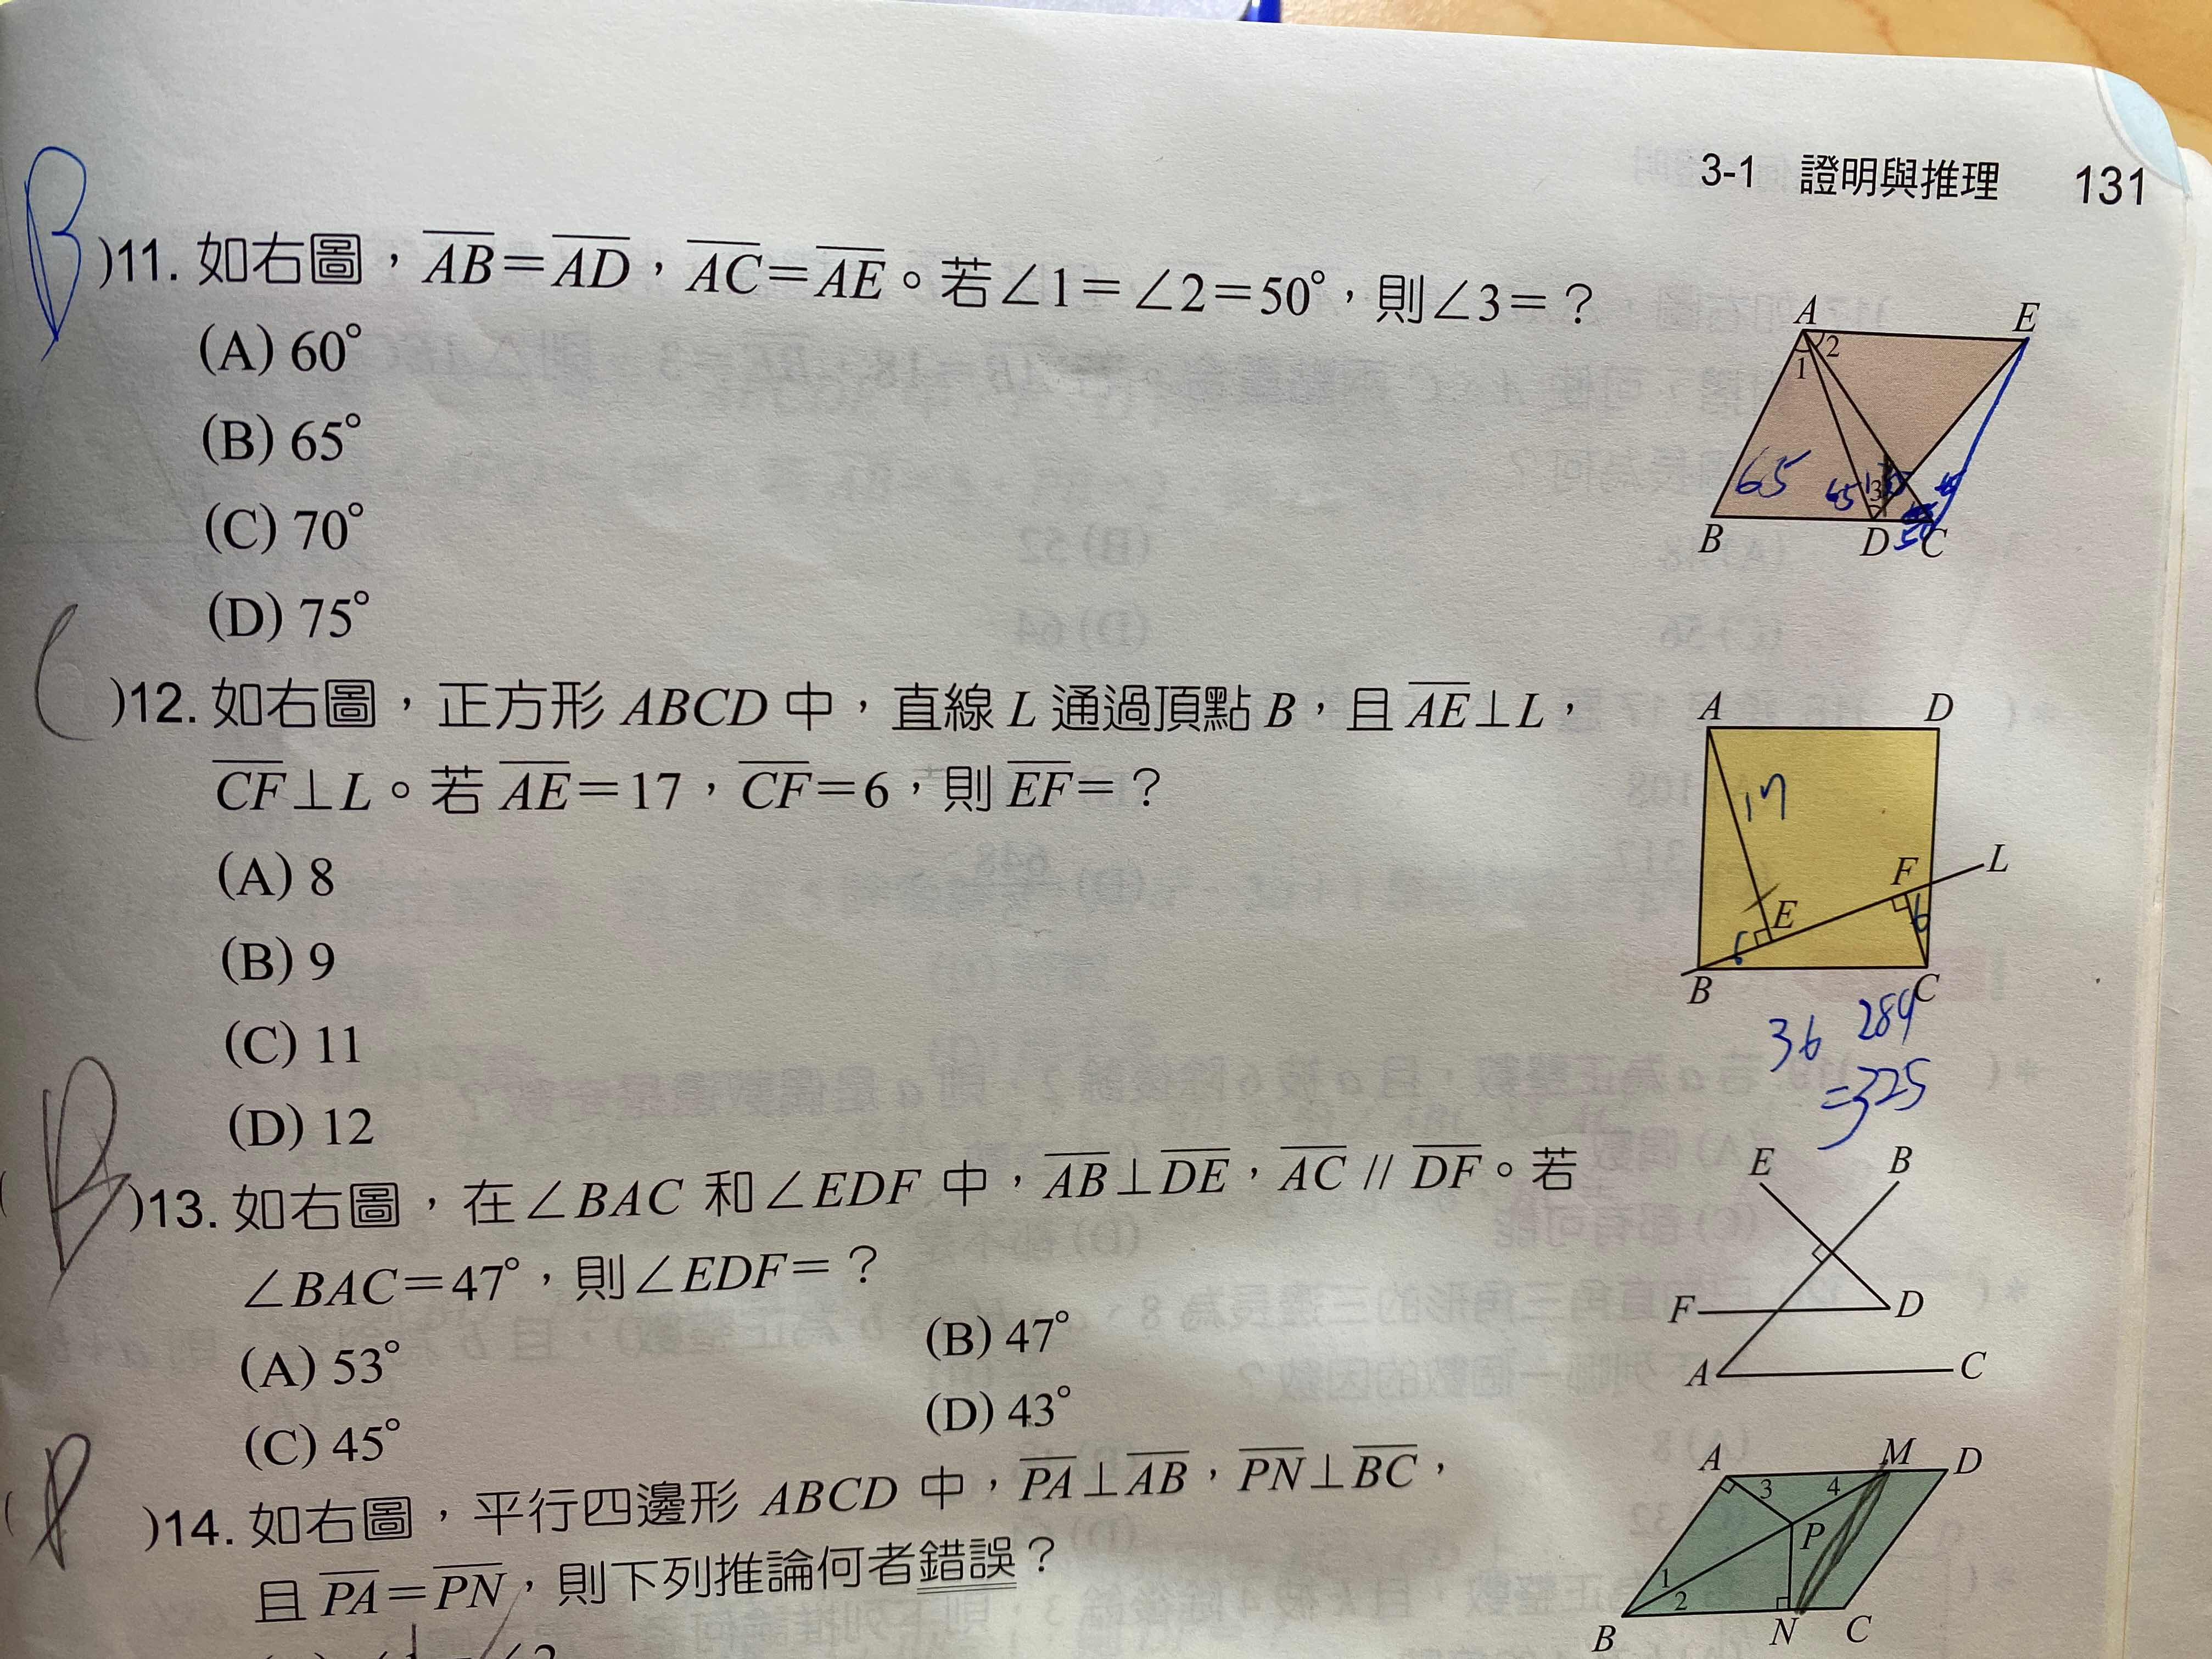 3-1 證明與推理 131
B )11. 如右圖，AB＝AD，AC＝AE。若∠1＝∠2＝50°，則∠3＝？
(A) 60°
(B) 65°
(C) 70°
(D) 75°
A E 1 2
65 3
B D C
C )12. 如右圖，正方形 ABCD 中，直線 L 通過頂點 B，且 AE⊥L，
CF⊥L。若 AE＝17，CF＝6，則 EF＝？
(A) 8
(B) 9
(C) 11
(D) 12
A D
17
F L
E 6
6
B C
36 289
=325
B )13. 如右圖，在∠BAC 和∠EDF 中，AB⊥DE，AC // DF。若
∠BAC＝47°，則∠EDF＝？
(A) 53° (B) 47°
(C) 45° (D) 43°
E B
F D
A C
)14. 如右圖，平行四邊形 ABCD 中，PA⊥AB，PN⊥BC，
且 PA＝PN，則下列推論何者錯誤？
A M D
3 4
P
1
2
B N C